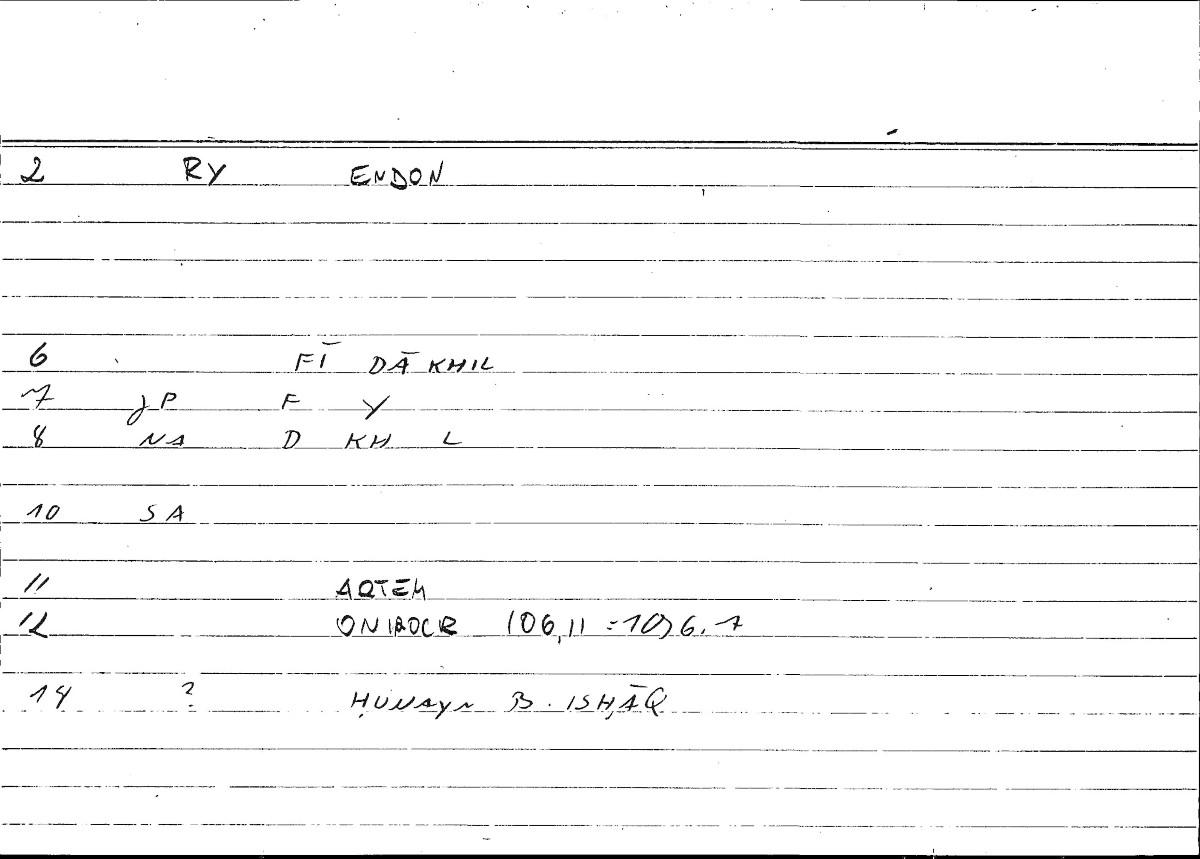 2 RY ENDON
6 FĪ DĀKHIL
7 JP F Y
8 NA D KH L
10 SA
11 ARTEM
12 ONIROCR 106,11 = 10,6.7
14 ? ḤUNAYN B. ISḤĀQ